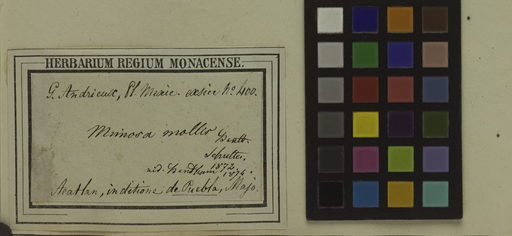 HERBARIUM REGIUM MONACENSE.
G. Andrieux, Pl. Mexic. exsicc. No. 400.
Mimosa mollis Benth.
1872.
vid. Bentham 1874.
Acatlan, in ditione de Puebla, Majo.